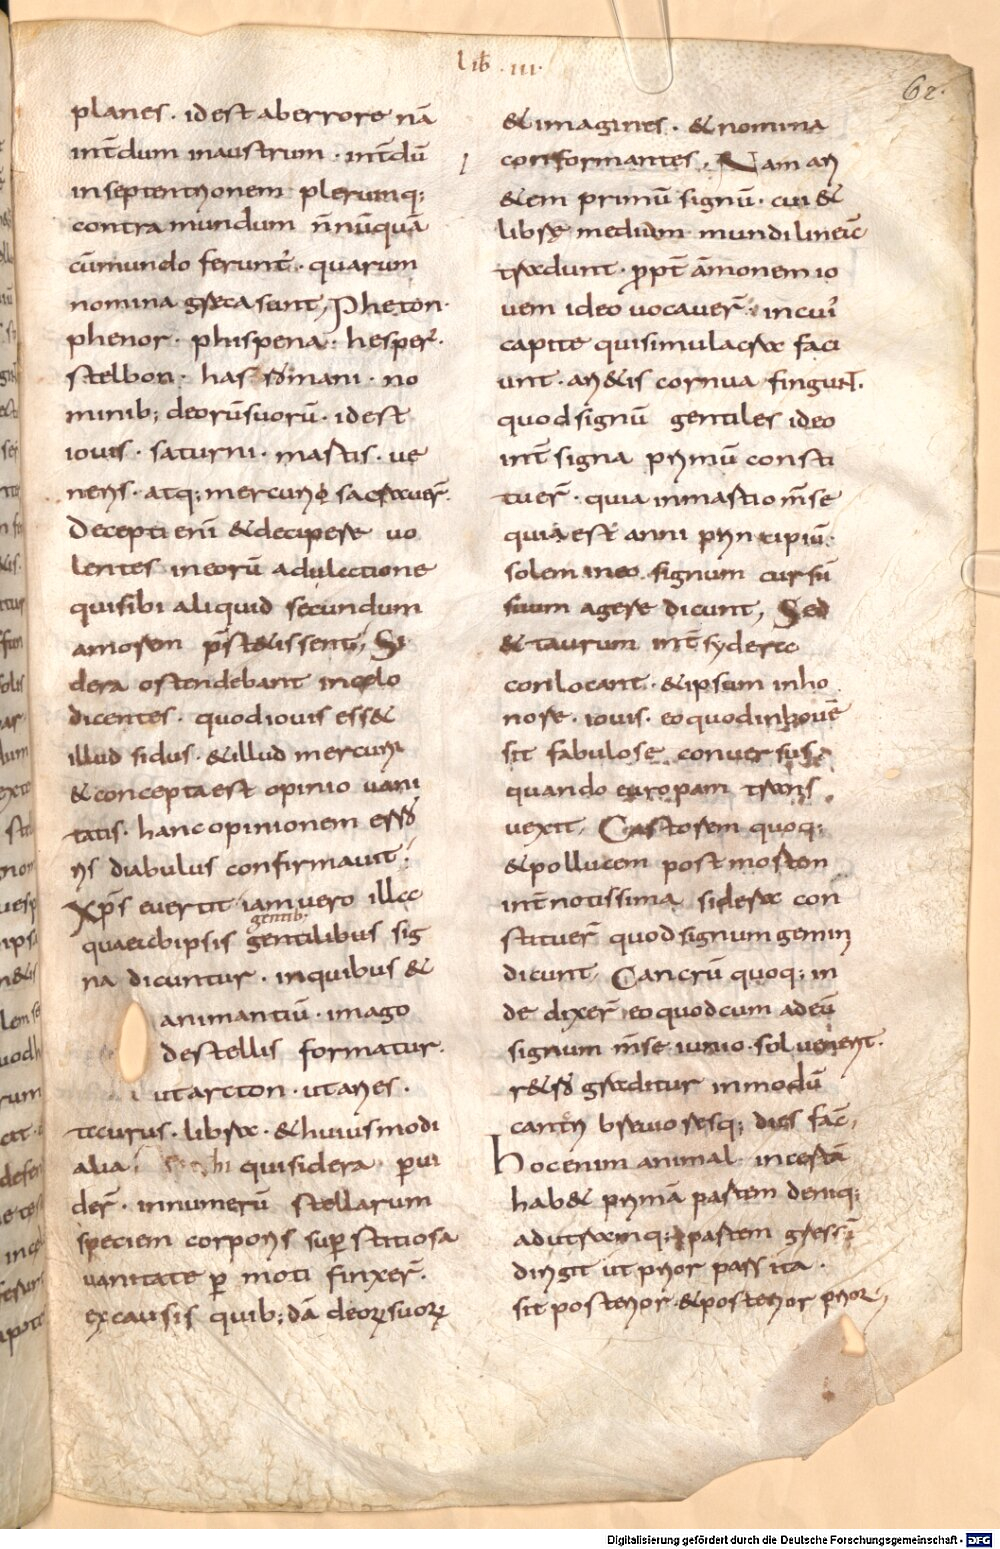 lib̄ . III .
62.
planes . id est ab errore nā
int̄dum in austrum . int̄dū
in septentrionem plerumq;
contra mundum n̄nūquā
cū mundo ferunt̄ . quarum
nomina greca sunt, Pheton .
phenor . phispena . hesper̄ .
stelbon . has romani . no
minib; deorū suorū . id est
iovis . saturni . martis . ue
neris . atq; mercurio sacrauer̄ .
Decepti enī & decipere uo
lentes in eorū adulectione
qui sibi aliquid secundum
amorem p̄st&issent, Si
dera ostendebant in celo
dicentes . quod iouis ess&
illud sidus . & illud mercurii
& concepta est opinio uani
tatis . hanc opinionem erro
ris diabulus confirmauit .
Xp̄s euertit iam uero illa
gentib;
quae ab ipsis gentilibus sig
na dicuntur . in quibus &
animantiū . imago
de stellis formatur .
ut arcton . ut aries .
taurus . libra . & huiusmodi
alia . qui sidera . p̄ui
der̄ . in numerū stellarum
speciem corporis sup̄stitiosa
uanitate p̄moti finxer̄ .
ex causis quib; dā deorꝝ suorꝝ
& imagines . & nomina
conformantes . Nam ari
&em primū signū . cui &
librę medium mundi lineā
tradunt . p̄pt̄ āmonem io
uem ideo uocauer̄ . in cui᾽
capite qui simulacra faci
unt . ari&is cornua fingunt .
quod signū gentiles ideo
int̄ signa primū consti
tuer̄ . quia in martio m̄se
quia est anni principiū .
solem in eo signum cursū
suum agere dicunt, Sed
& taurum int̄ sydera
conlocant . & ipsum in ho
nore . iouis . eo quod in bouē
sit fabulose conuersus .
quando europam trans
uexit, Castorem quoq;
& pollucem post mortem
int̄ notissima sidera con
stituer̄ quod signum gemini
dicunt, Cancrū quoq; in
de dixer̄ eo quod cum ad eū
signum m̄se iunio sol uenerit .
r&ro graditur in modū
cancri breuioresq; dies fac̄,
Hoc enim animal incertā
hab& primā partem deniq;
ad utramq; partem gressū
dirigit ut prior pars ita .
sit posterior . & posterior prior,
Digitalisierung gefördert durch die Deutsche Forschungsgemeinschaft - DFG